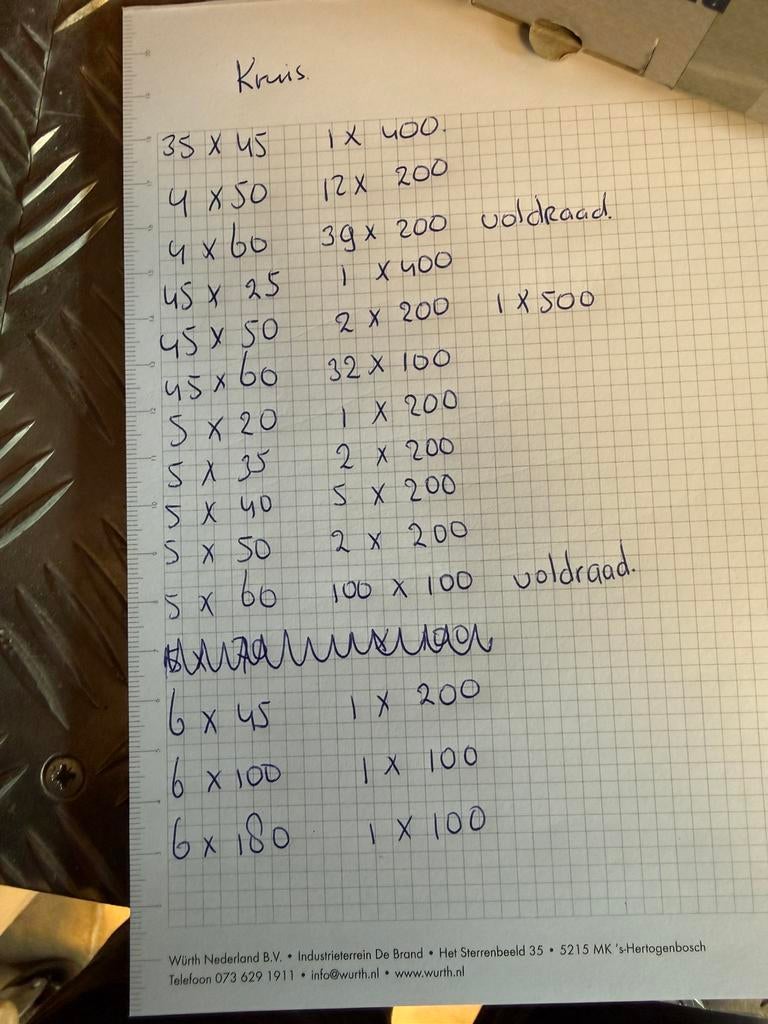 Kruis.
35 x 45 1 x 400.
4 x 50 12 x 200
4 x 60 39 x 200 voldraad.
45 x 25 1 x 400
45 x 50 2 x 200 1 x 500
45 x 60 32 x 100
5 x 20 1 x 200
5 x 35 2 x 200
5 x 40 5 x 200
5 x 50 2 x 200
5 x 60 100 x 100 voldraad.
6 x 45 1 x 200
6 x 100 1 x 100
6 x 180 1 x 100
Würth Nederland B.V. • Industrieterrein De Brand • Het Sterrenbeeld 35 • 5215 MK 's-Hertogenbosch
Telefoon 073 629 1911 • info@wurth.nl • www.wurth.nl